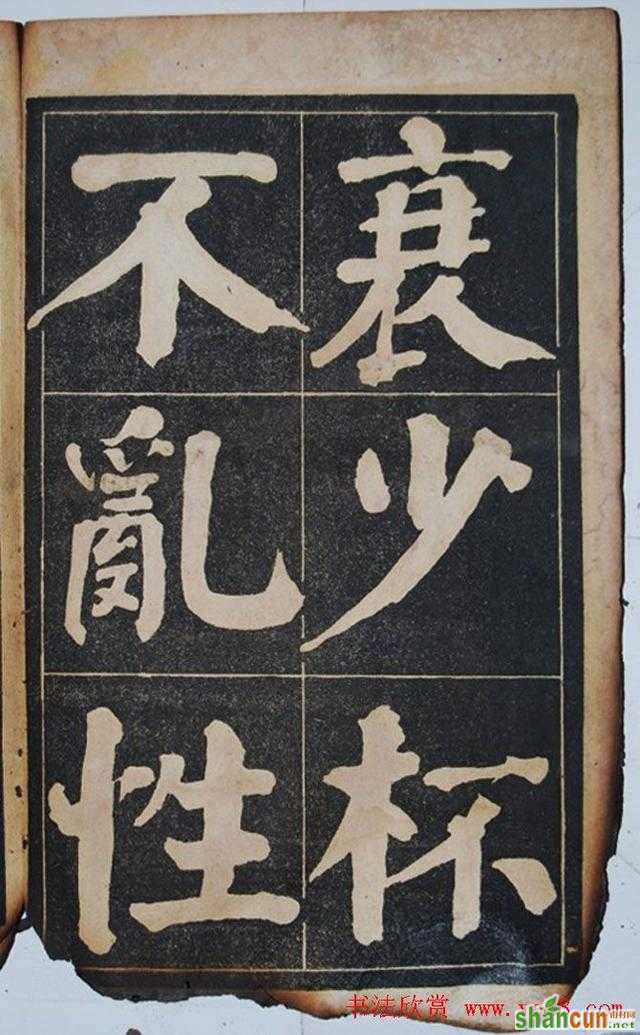 衰少杯
不亂性
书法欣赏
shancun
.net